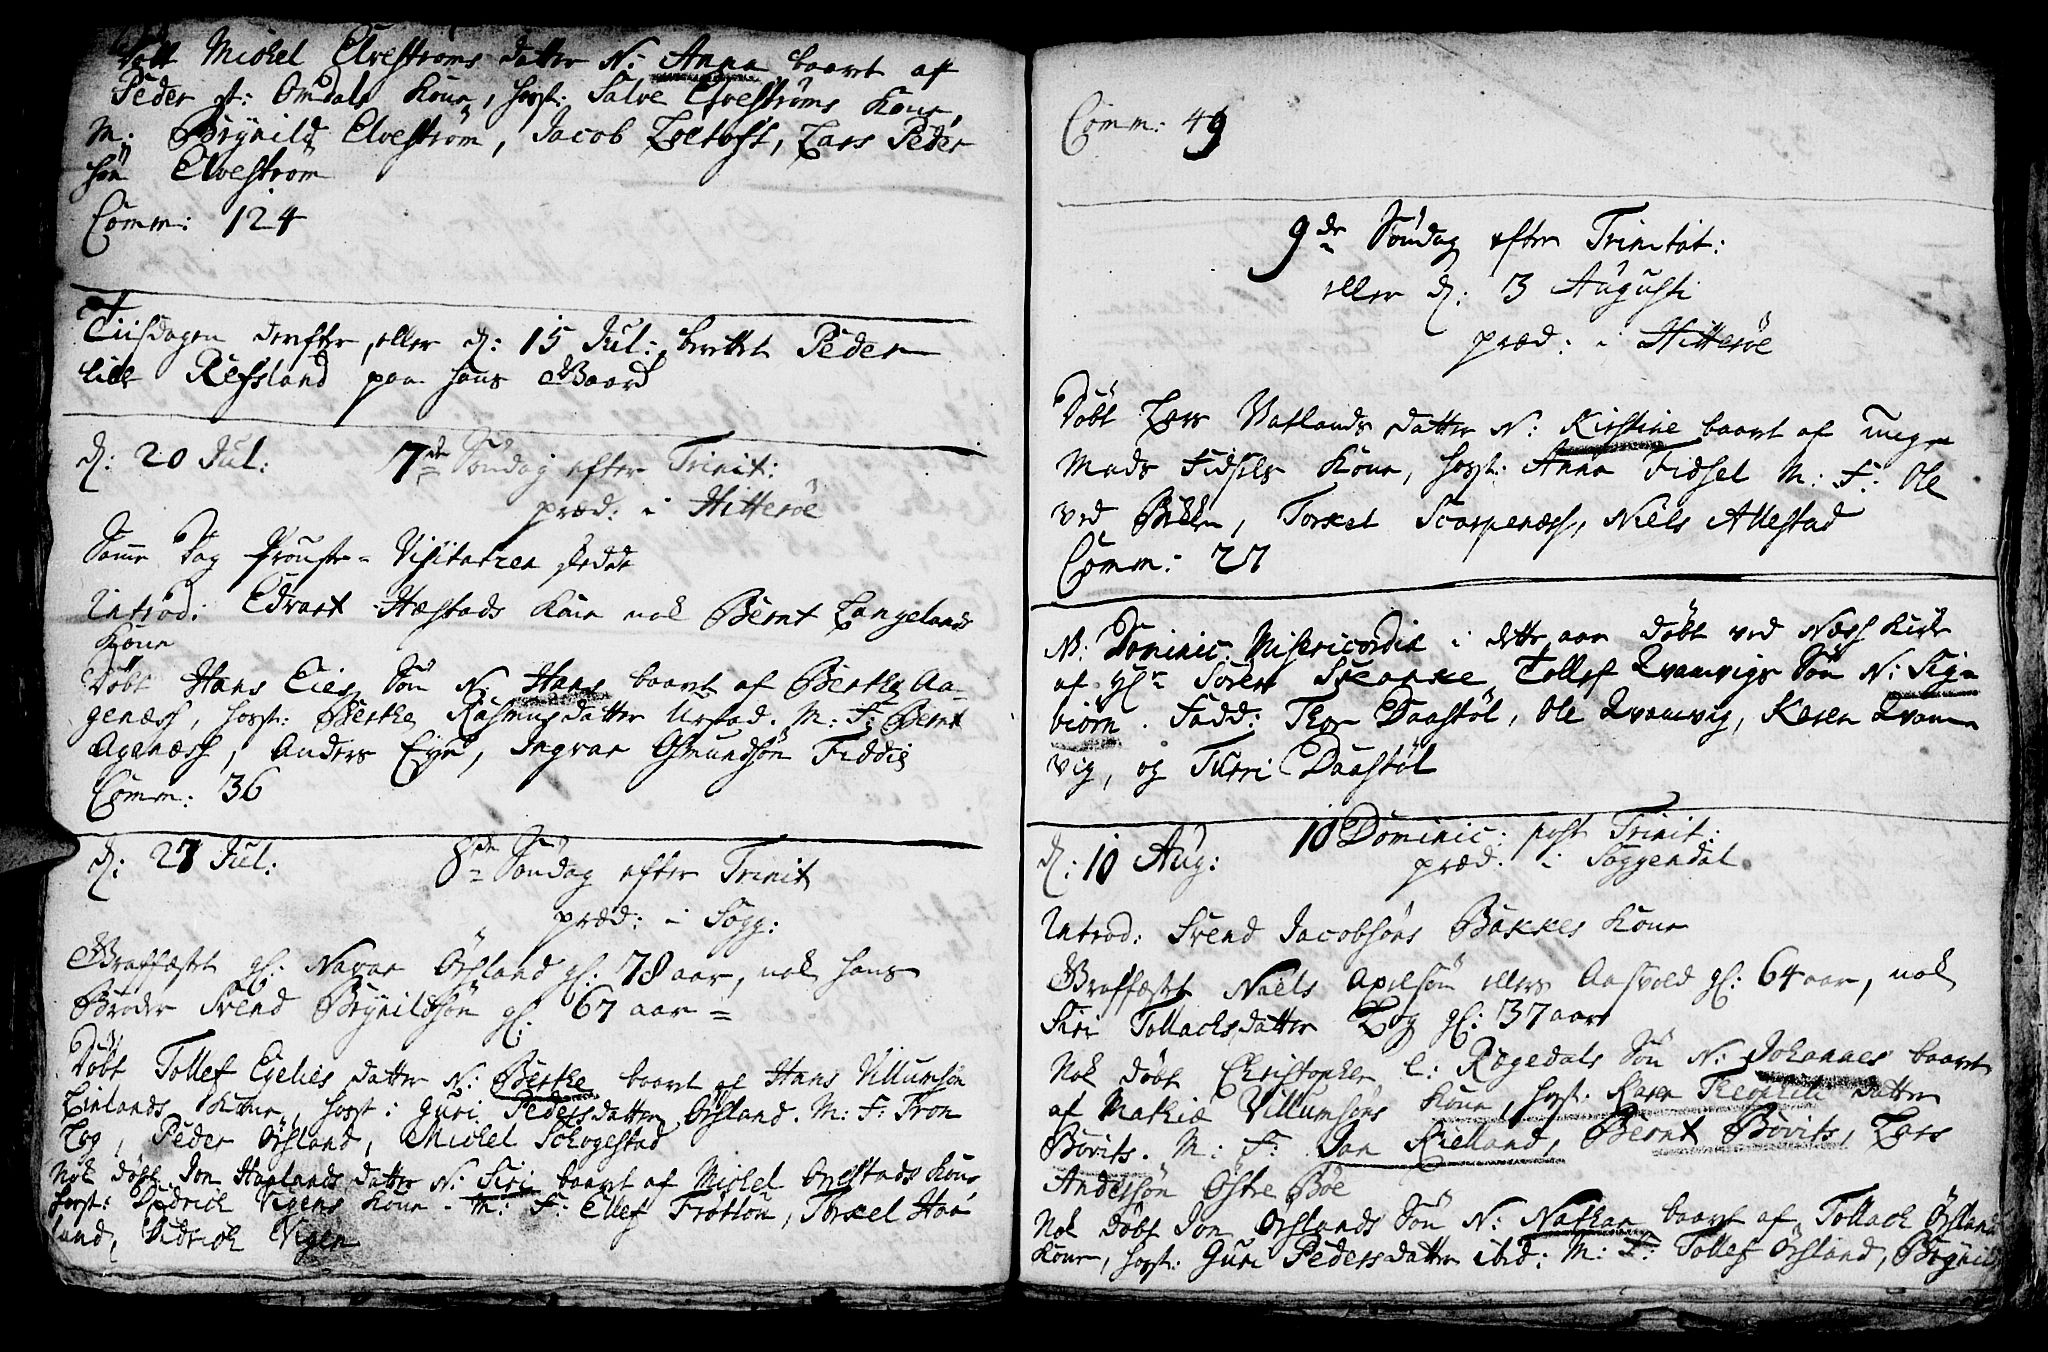 Døbt Michel Elvestrøms datter N: Anna baaret af
Peder st: Omdals Kone, host: Salve Elvestrøms Kone
M: Brynild Elvestrøm, Jacob Loetoft, Lars Peder
søn Elvestrøm
Comm: 124
Tiisdagen derefter, eller d: 15 Jul: berettet Peder
Refsland paa hans Baard
d: 20 Jul: 7de Søndag efter Trinit:
præd: i Hitterøe
Samme Dag Prouste-Visitatzen skedde
Introd: Edvart Hæstads Kone nok Bernt Langelands
Kone
Døbt Hans Eies Søn N: Hans baaret af Berthe Aa-
genæss, host: Berthe Rasmusdatter Urstad. M: F: Bernt
Agenæss, Anders Eye, Ingvar Osmundsøn Fiddie
Comm: 36
d: 27 Jul: 8de Søndag efter Trinit
præd: i Sogg:
Begraffæstet gl: Navar Ørsland gl: 78 aar, nok hans
Broder Svend Brynildsøn gl: 67 aar =
Døbt Tollef Egelies datter N: Berthe baaret af Hans Villumsøn
Linlands Kone, host: Guri Pedersdatter Ørsland. M: F: Tron
Log, Peder Ørsland, Michel Schogestad
Nok døbt Jon Haalands datter N: Siri baaret af Michel Orrestads Kone
host: Didrich Vigens Kone - M: F: Ellef Frøtlon, Torkel Haa-
land, Didrich Vigen
Comm: 49
9de Søndag efter Trinitat:
eller d: 3 Augusti
præd: i Hitterøe
Døbt Lars Vatlands datter N: Kirstine baaret af unge
Mads Fidsels Kone, host: Anna Fidsel M: F: Ole
ved Bekken, Torkel Scarpenæss, Niels Allestad
Comm: 27
NB: Dominic: Misericordia i dette aar døbt ved Næss Kirke
af Hr: Søren Schanke Tollef Qvamvigs Søn N: Sig-
biørn. Fadd: Thor Daastøl, Ole Qvamvig, Karen Qvam-
vig, og Turri Daastøl
d: 10 Aug: 10 Dominic: post Trinit:
præd: i Soggendal
Introd: Svend Jacobsøns Bakkes Kone
Begraffæstet Niels Axelsøn ellers Aasvold gl: 64 aar, nok
Siri Tollachsdatter Log gl: 37 aar
Nok døbt Christopher l: Rægedals Søn N: Johannes baaret
af Makiæ Villumsøns Kone, host: Karen datter
Bovits. M: F: Jan Kielland, Bernt Bovits, Lars
Andersøn Østre Bøe
Nok døbt Jon Ørslands Søn N: Nathan baaret af Tollach Ørslands
Kone, host: Guri Pedersdatter ibid: M: F: Tollef Ørsland, Brynild